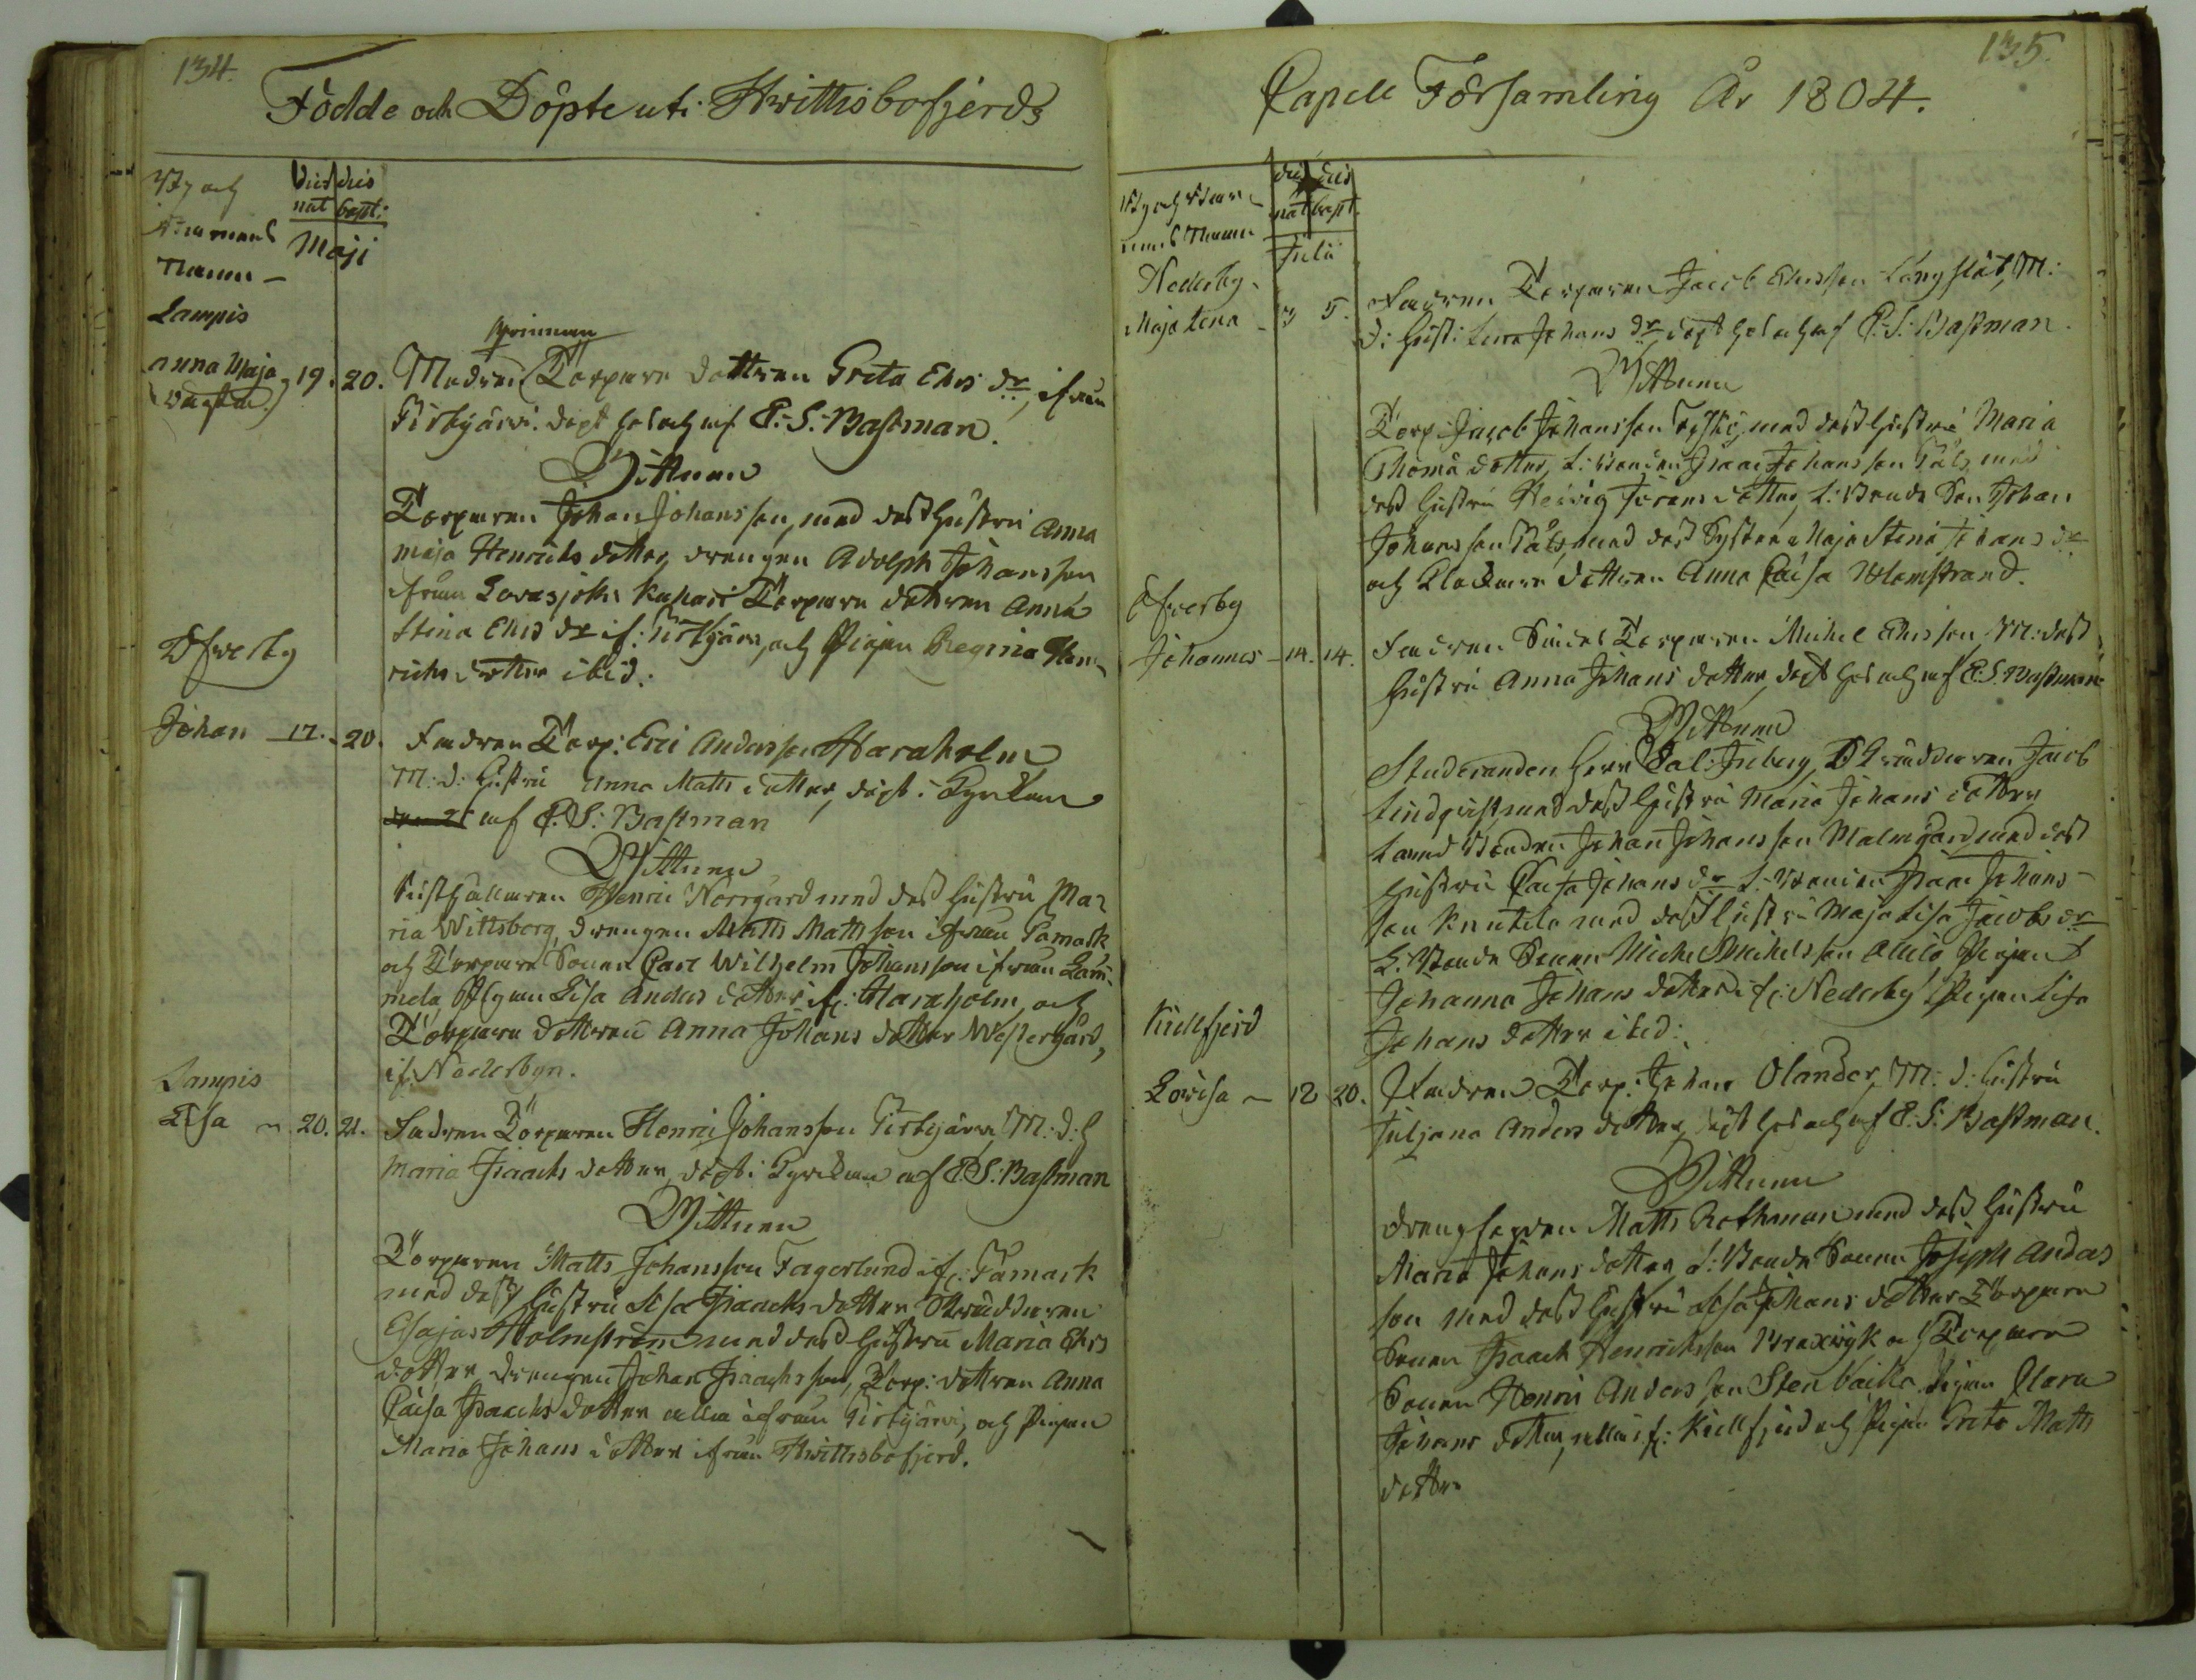 134.
Födde och Döpte uti Hwittisbofjerds
By och
Barnens
Namn
dies nat
dies bapt:
Maji
Lampis
Anna Maja
19. 20.
qvinnan
Modren Torpare dottren Greta Ehrs dr, ifrån
Pirkjärvi. döpt hos och af P. S. Bastman.
Vittnen
Torparen Johan Johansson, med dess hustru Anna
Maja Henrichs dotter, drengen Adolph Johansson
ifrån Torpare dottren Anna
Stina Ehrs dr if: Pirkjärvi, och Pigan Regina Hen-
richs dotter ibid.
Öfverby
Johan 17. 20.
Fadren Torp: Eric Andersson Haraholm
M: d: Hustru Anna Matts dotter, döpt i Kyrckan
af P. S: Bastman
Vittnen
Rusthållaren Henric Norrgård med dess hustru Ma-
ria Wittsborg, drengen Matts Mattsson ifrån Tamark
och Torpare Sonen Carl Wilhelm Johansson ifrån Lam-
mela, Pigan Lisa Anders dotter if: Haraholm, och
Torpare dottren Anna Johans dotter Westergård,
if. Nederbyn.
Lampis
Lisa 20. 21.
Fadren Torparen Henric Johansson Pirkjärvi M: d: h
Maria Isaachs dotter, döpt i Kyrckan af P. S: Bastman
Vittnen
Torparen Matts Johansson Fagerlund if: Tamark
med dess Hustru Lisa Isaachs dotter
Esajas Holmström med dess hustru Maria Ehrs
dotter, drengen Johan Isaachsson, Torp: dottren Anna
Caisa Isaachs dotter alla ifrån Pirkjärvi, och Pigan
Maria Johans dotter ifrån Hwittisbofjerd.
135.
Capell Församling År 1804.
By och Bar-
nens Namn
dies nat
dies bapt.
Julii
Nederby
Maja Lena 3 5.
Fadren Torparen Jacob Ehrsson Långslät, M:
d: Hust: Lena Johans dr döpt hos och af P. S: Bastman.
Vittnen
Torp: Jacob Johansson med dess hustru Maria
Thoma dotter, L: Bonden Isaac Johansson Påls med
dess hustru Hedvig Görans dotter, L: Bonde Son Johan
Johansson Påls, med dess Syster Maja Stina Johans dr
och Klockare dottren Anna Caisa Blomstrand.
Öfverby
Johannes 14. 14.
Fadren Torparen Michel Ehrsson, M: dess
Hustru Anna Johans dotter, döpt hos och af P. S. Bastman
Vittnen
Studeranden Herr Jacob
Lindqvist, med dess hustru Maria Johans dotter
Land Bonden Johan Johansson Malmgård med dess
hustru Caisa Johans dr L: Bonden Isaac Johans-
son Knutila med dess hustru Maja Lisa Jacobs dr
L: Bonde Sonen Michel Michelsson Pigan
Johanna Johans dotter if: Nederby, Pigan Lisa
Johans dotter ibid:
Kiellfjerd
Lovisa 12 20.
Fadren Torp: Johan Olander, M: d: Hustru
Juljana Anders dotter, döpt hos och af P. S: Bastman.
Vittnen
Matts Rothman med dess hustru
Maria Johans dotter, L: Bonde Sonen Joseph Anders
son med dess hustru Lisa Johans dotter Torpare
Sonen Isaach Henrichsson Braxwyk och Torpare
Sonen Henric Andersson Stenbacka Pigan Clara
Johans dotter, alla if: Kiellfjerd och Pigan Greta Matts
dotter